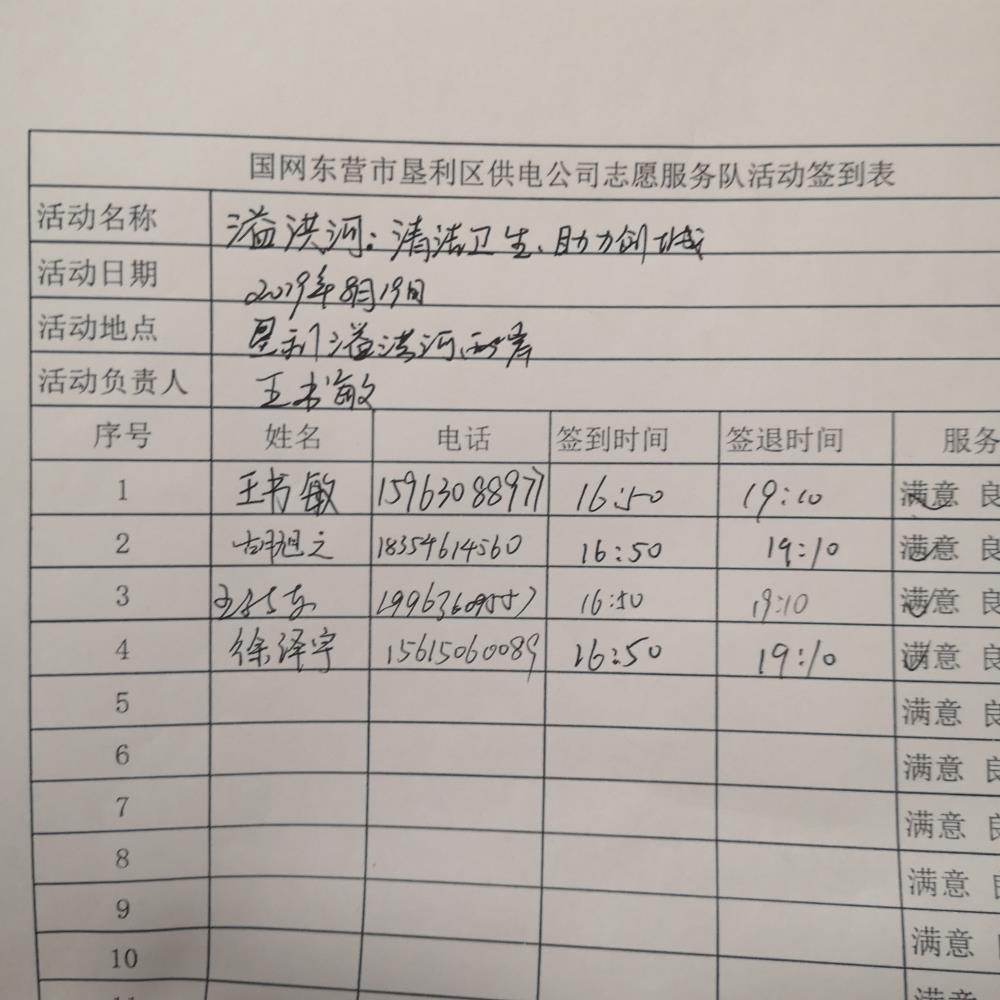 国网东营市垦利区供电公司志愿服务队活动签到表
活动名称 溢洪河:清洁卫生、助力创城
活动日期 2019年8月19日
活动地点 垦利溢洪河两岸
活动负责人 王书敏
序号 姓名 电话 签到时间 签退时间 服务
1 王书敏 15963088971 16:50 19:10 满意 良
2 胡旭之 18354614560 16:50 19:10 满意 良
3 16:50 19:10 满意 良
4 徐泽宇 15615060089 16:50 19:10 满意 良
5 满意 良
6 满意 良
7 满意 良
8 满意
9 满意
10